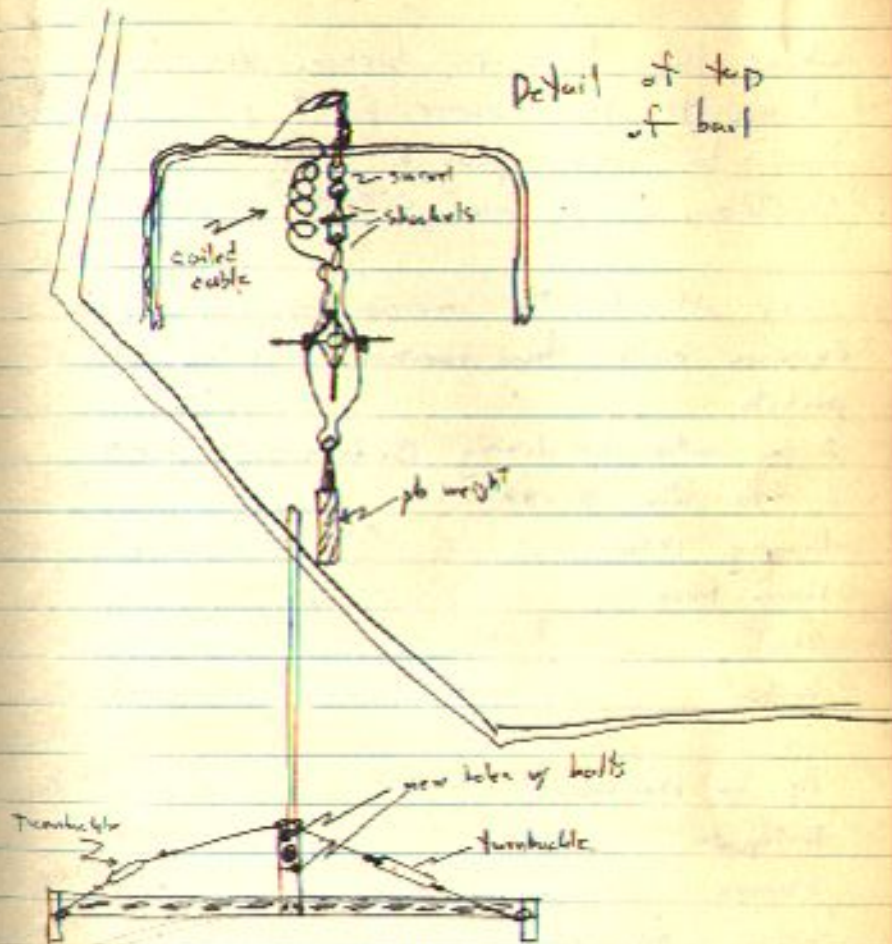 Detail of top
of bail
swivel
shackels
coiled
cable
pb weight
new holes w/ bolts
Turnbuckle
turnbuckle